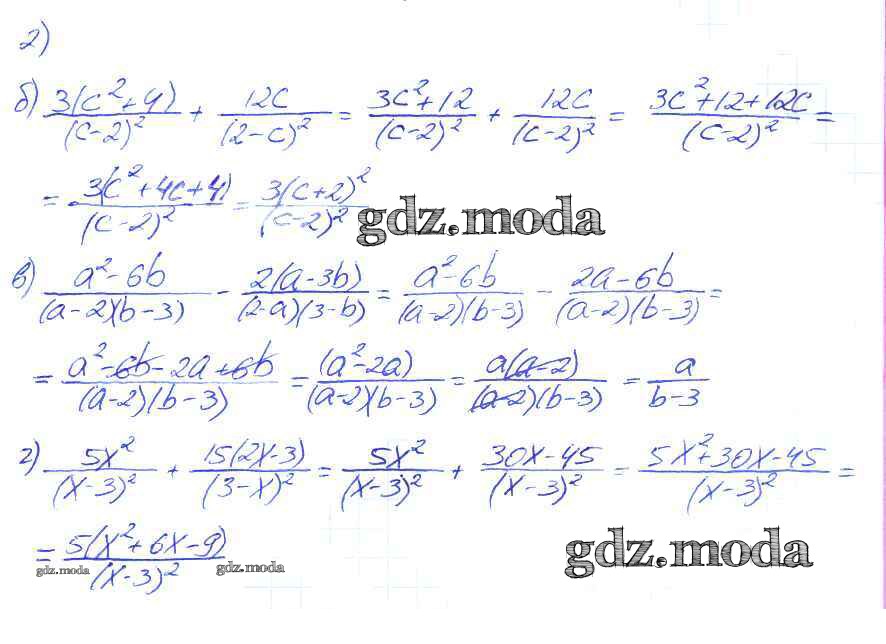 2)
б) 3(c²+4)/(c-2)² + 12c/(2-c)² = 3c²+12/(c-2)² + 12c/(c-2)² = 3c²+12+12c/(c-2)² =
= 3(c²+4c+4)/(c-2)² = 3(c+2)²/(c-2)²
gdz.moda
в) a²-6b/(a-2)(b-3) - 2(a-3b)/(2-a)(3-b) = a²-6b/(a-2)(b-3) - 2a-6b/(a-2)(b-3) =
= a²-6b-2a+6b/(a-2)(b-3) = (a²-2a)/(a-2)(b-3) = a(a-2)/(a-2)(b-3) = a/b-3
г) 5x²/(x-3)² + 15(2x-3)/(3-x)² = 5x²/(x-3)² + 30x-45/(x-3)² = 5x²+30x-45/(x-3)² =
= 5(x²+6x-9)/(x-3)²
gdz.moda
gdz.moda
gdz.moda